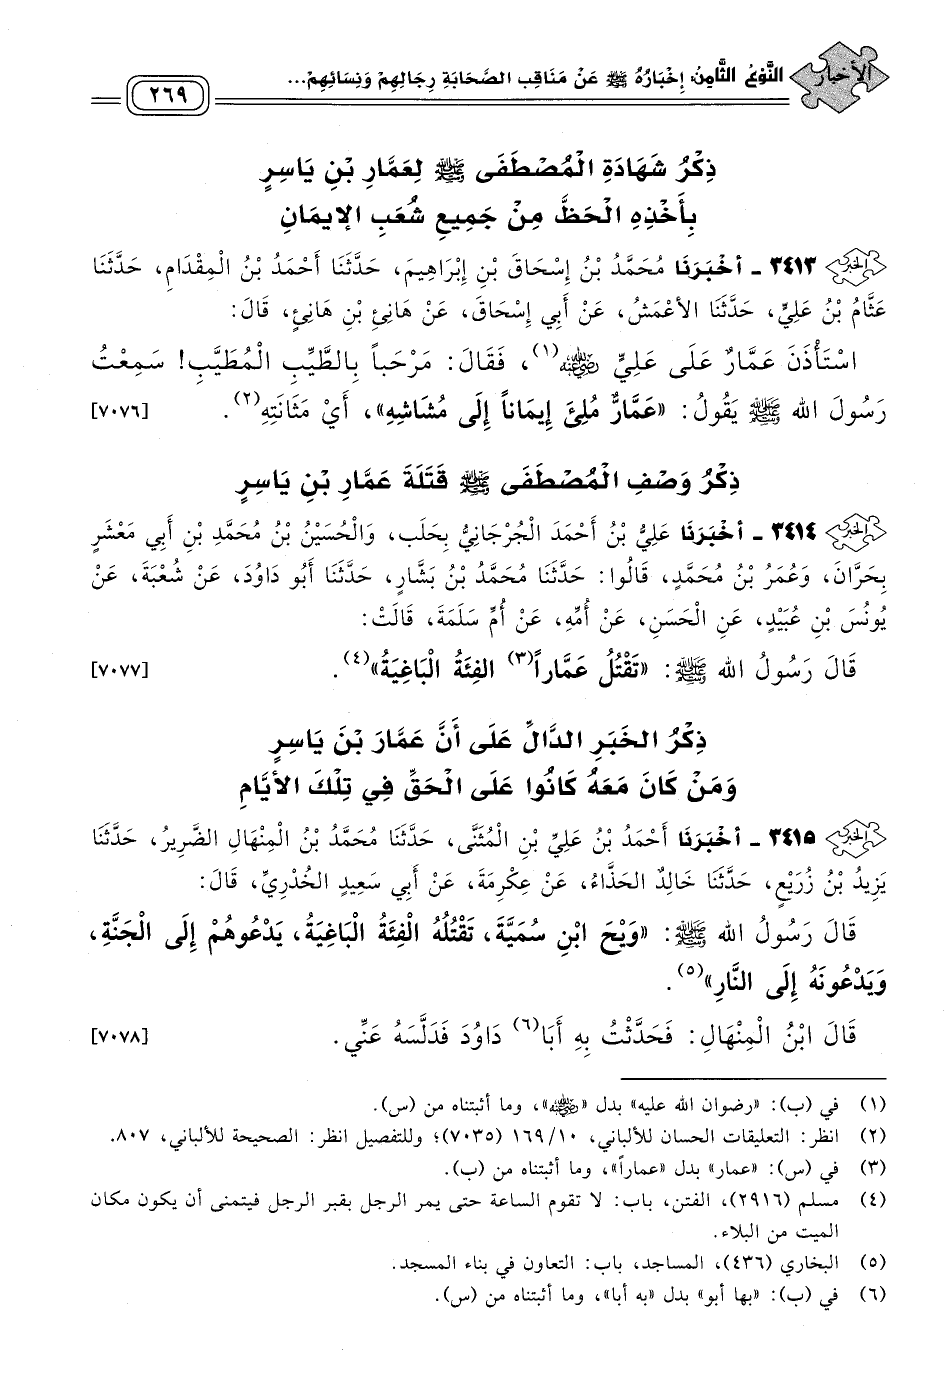 الأخبار
النَّوْعُ الثَّامِنُ: إِخْبَارُهُ ﷺ عَنْ مَنَاقِبِ الصَّحَابَةِ رِجَالِهِمْ وَنِسَائِهِمْ...
٢٦٩
ذِكْرُ شَهَادَةِ الْمُصْطَفَى ﷺ لِعَمَّارِ بْنِ يَاسِرٍ
بِأَخْذِهِ الْحَظَّ مِنْ جَمِيعِ شُعَبِ الإِيمَانِ
الخبر ٣٤١٣ ـ أَخْبَرَنَا مُحَمَّدُ بْنُ إِسْحَاقَ بْنِ إِبْرَاهِيمَ، حَدَّثَنَا أَحْمَدُ بْنُ الْمِقْدَامِ، حَدَّثَنَا
عَثَّامُ بْنُ عَلِيٍّ، حَدَّثَنَا الأَعْمَشُ، عَنْ أَبِي إِسْحَاقَ، عَنْ هَانِئِ بْنِ هَانِئٍ، قَالَ:
اسْتَأْذَنَ عَمَّارٌ عَلَى عَلِيٍّ رضي الله عنه(١)، فَقَالَ: مَرْحَباً بِالطَّيِّبِ الْمُطَيَّبِ! سَمِعْتُ
رَسُولَ الله ﷺ يَقُولُ: «عَمَّارٌ مُلِئَ إِيمَاناً إِلَى مُشَاشِهِ»، أَيْ مَثَانَتِهِ(٢). [٧٠٧٦]
ذِكْرُ وَصْفِ الْمُصْطَفَى ﷺ قَتَلَةَ عَمَّارِ بْنِ يَاسِرٍ
الخبر ٣٤١٤ ـ أَخْبَرَنَا عَلِيُّ بْنُ أَحْمَدَ الْجُرْجَانِيُّ بِحَلَب، وَالْحُسَيْنُ بْنُ مُحَمَّدِ بْنِ أَبِي مَعْشَرٍ
بِحَرَّانَ، وَعُمَرُ بْنُ مُحَمَّدٍ، قَالُوا: حَدَّثَنَا مُحَمَّدُ بْنُ بَشَّارٍ، حَدَّثَنَا أَبُو دَاوُدَ، عَنْ شُعْبَةَ، عَنْ
يُونُسَ بْنِ عُبَيْدٍ، عَنِ الْحَسَنِ، عَنْ أُمِّهِ، عَنْ أُمِّ سَلَمَةَ، قَالَتْ:
قَالَ رَسُولُ الله ﷺ: «تَقْتُلُ عَمَّاراً(٣) الفِئَةُ الْبَاغِيَةُ»(٤). [٧٠٧٧]
ذِكْرُ الْخَبَرِ الدَّالِّ عَلَى أَنَّ عَمَّارَ بْنَ يَاسِرٍ
وَمَنْ كَانَ مَعَهُ كَانُوا عَلَى الْحَقِّ فِي تِلْكَ الأَيَّامِ
الخبر ٣٤١٥ ـ أَخْبَرَنَا أَحْمَدُ بْنُ عَلِيِّ بْنِ الْمُثَنَّى، حَدَّثَنَا مُحَمَّدُ بْنُ الْمِنْهَالِ الضَّرِيرُ، حَدَّثَنَا
يَزِيدُ بْنُ زُرَيْعٍ، حَدَّثَنَا خَالِدٌ الْحَذَّاءُ، عَنْ عِكْرِمَةَ، عَنْ أَبِي سَعِيدٍ الْخُدْرِيِّ، قَالَ:
قَالَ رَسُولُ الله ﷺ: «وَيْحَ ابْنِ سُمَيَّةَ، تَقْتُلُهُ الْفِئَةُ الْبَاغِيَةُ، يَدْعُوهُمْ إِلَى الْجَنَّةِ،
وَيَدْعُونَهُ إِلَى النَّارِ»(٥).
قَالَ ابْنُ الْمِنْهَالِ: فَحَدَّثْتُ بِهِ أَبَا(٦) دَاوُدَ فَدَلَّسَهُ عَنِّي. [٧٠٧٨]
(١) في (ب): «رضوان الله عليه» بدل «رضي الله عنه»، وما أثبتناه من (س).
(٢) انظر: التعليقات الحسان للألباني، ١٠/ ١٦٩ (٧٠٣٥)؛ وللتفصيل انظر: الصحيحة للألباني، ٨٠٧.
(٣) في (س): «عمار» بدل «عماراً»، وما أثبتناه من (ب).
(٤) مسلم (٢٩١٦)، الفتن، باب: لا تقوم الساعة حتى يمر الرجل بقبر الرجل فيتمنى أن يكون مكان
الميت من البلاء.
(٥) البخاري (٤٣٦)، المساجد، باب: التعاون في بناء المسجد.
(٦) في (ب): «بها أبو» بدل «به أبا»، وما أثبتناه من (س).